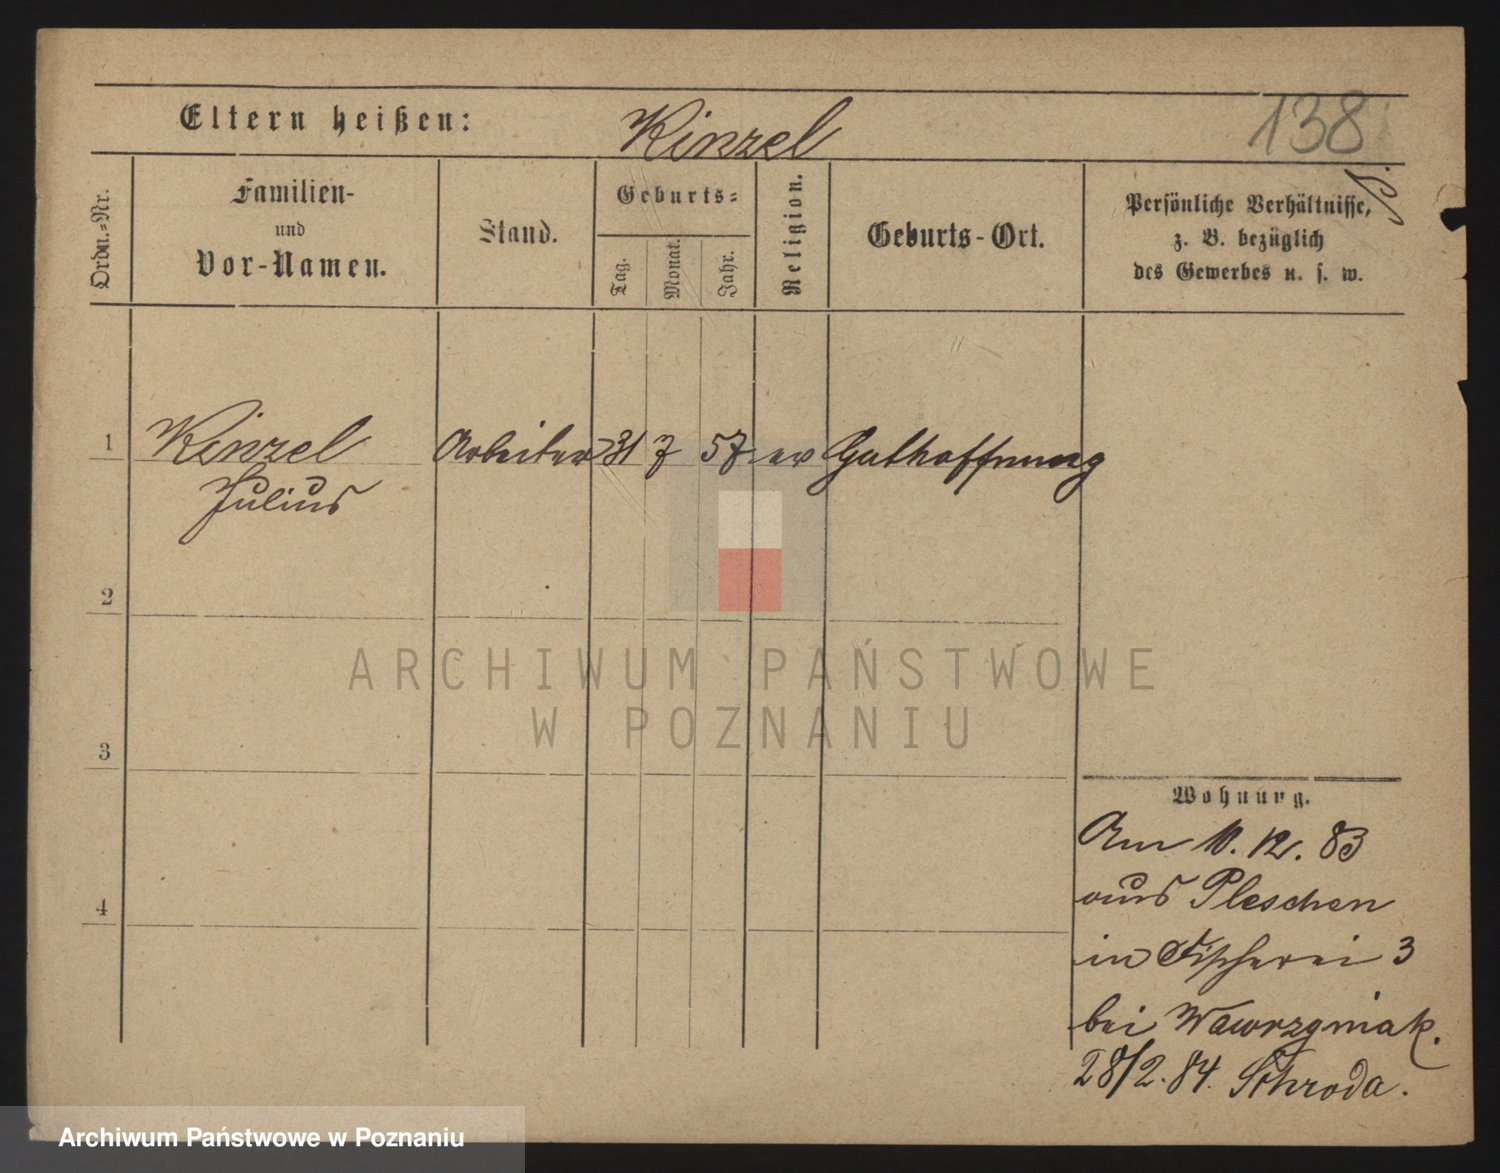 Eltern heißen: Kinzel 138
Ordn.-Nr.
Familien-
und
Vor-Namen.
Stand.
Geburts-
Tag.
Monat.
Jahr.
Religion.
Geburts-Ort.
Persönliche Verhältnisse,
z. B. bezüglich
des Gewerbes u. s. w.
1 Kinzel Arbeiter 31 7 57 ev Guthoffnung
Julius
2
3
4
Wohnung.
Am 10. 12. 83
aus Pleschen
in Fischerei 3
bei Wawrzyniak.
28/2. 84. Schroda.
ARCHIWUM PAŃSTWOWE
W POZNANIU
Archiwum Państwowe w Poznaniu